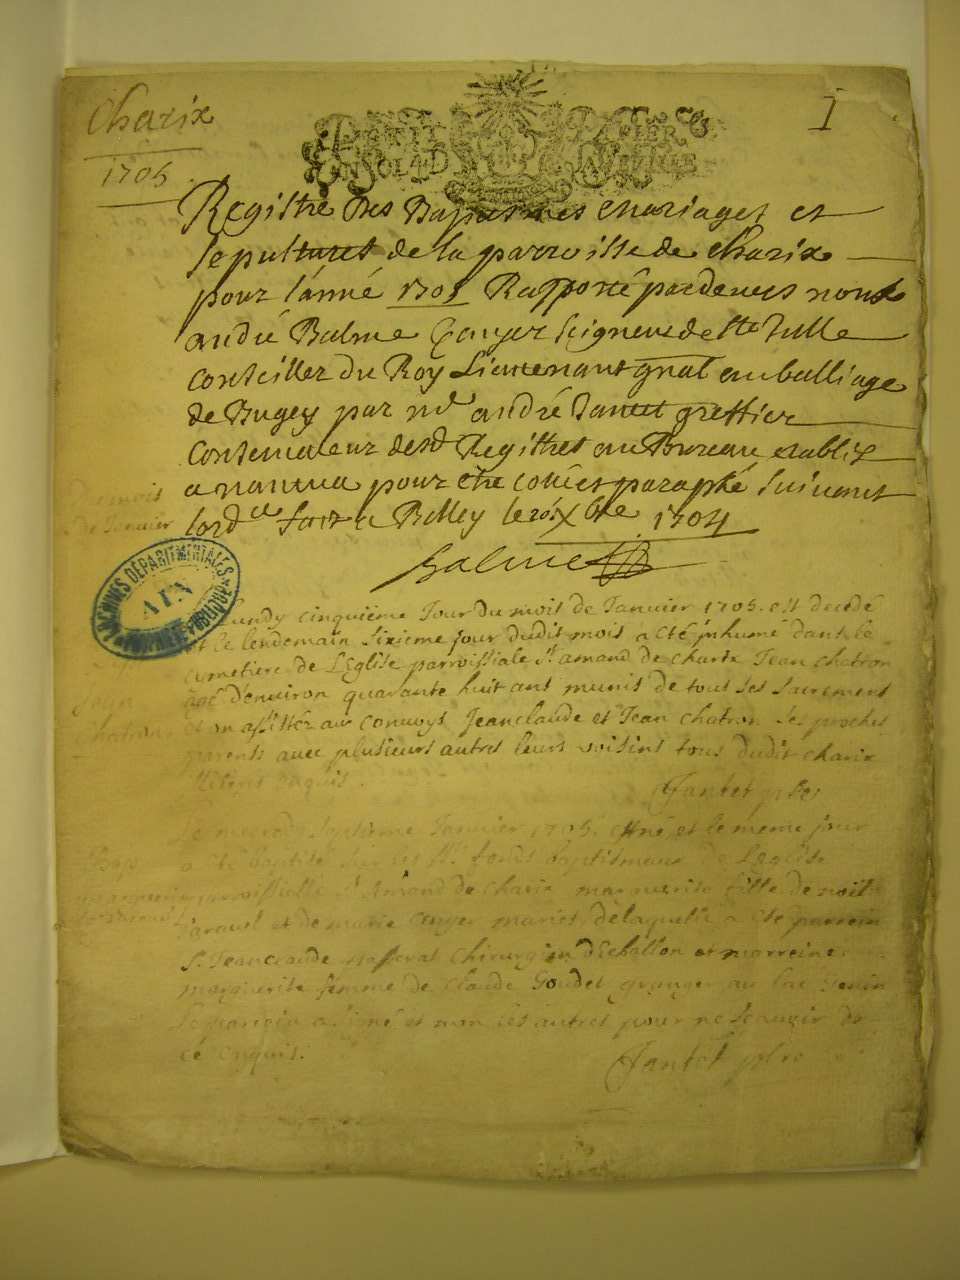 Charix
1705
I
PETIT PAPIER
UN SOL 4 D LA FEUILLE
Registre Des Baptesmes Mariages et
sepultures de la parroisse de Charix
pour l'année 1705 Rapporté pardevers nous
andré Balme Ecuyer seigneur de Ste Julle
Conseiller du Roy Lieutenant gnal au balliage
de Bugey par md andré Jantet greffier
Conservateur desd Registres au Bureau etablix
a nantua pour etre cottéet paraphé suivant
lord ce fait a Belley le Xbre 1704
Balme
Du mois
de Janvier
ARCHIVES DÉPARTEMENTALES
AIN
Lundy cinquiéme Jour du mois de Janvier 1705. est decedé
et le lendemain sixieme jour dudit mois a eté jnhumé dans le
cimetiere de L'Eglise parroissiale St amand de charix Jean chatron
agé d'environ quarante huit ans munis de tous ses sacrements
et on assistéz au convoys Jeanclaude et Jean chatron ses proches
parents avec plusieurs autres leurs voisins tous dudit charix
enquis.
Jean
chatron
Jantet ptre
Le mecredy septieme Janvier 1705. est né et le meme jour
a eté baptisé sur les fonds baptismaux de L'eglise
parroissialle St Amand de charix marguerite fille de
et de marie mariés delaquelle a eté parrein
Sr Jeanclaude chirurgien d'Echallon et marreine
marguerite femme de claude Goudet granger au lac Genin
Le parrein a signé et non les autres pour ne scavoir de
ce enquis.
Bap
Jantet ptre